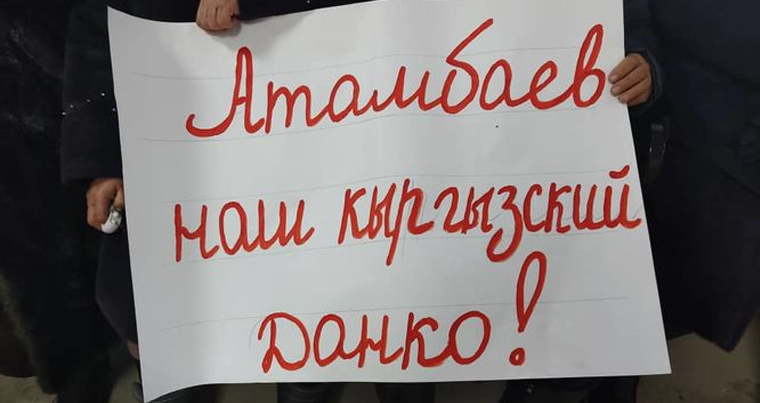 Атамбаев
наш кыргызский
Данко!